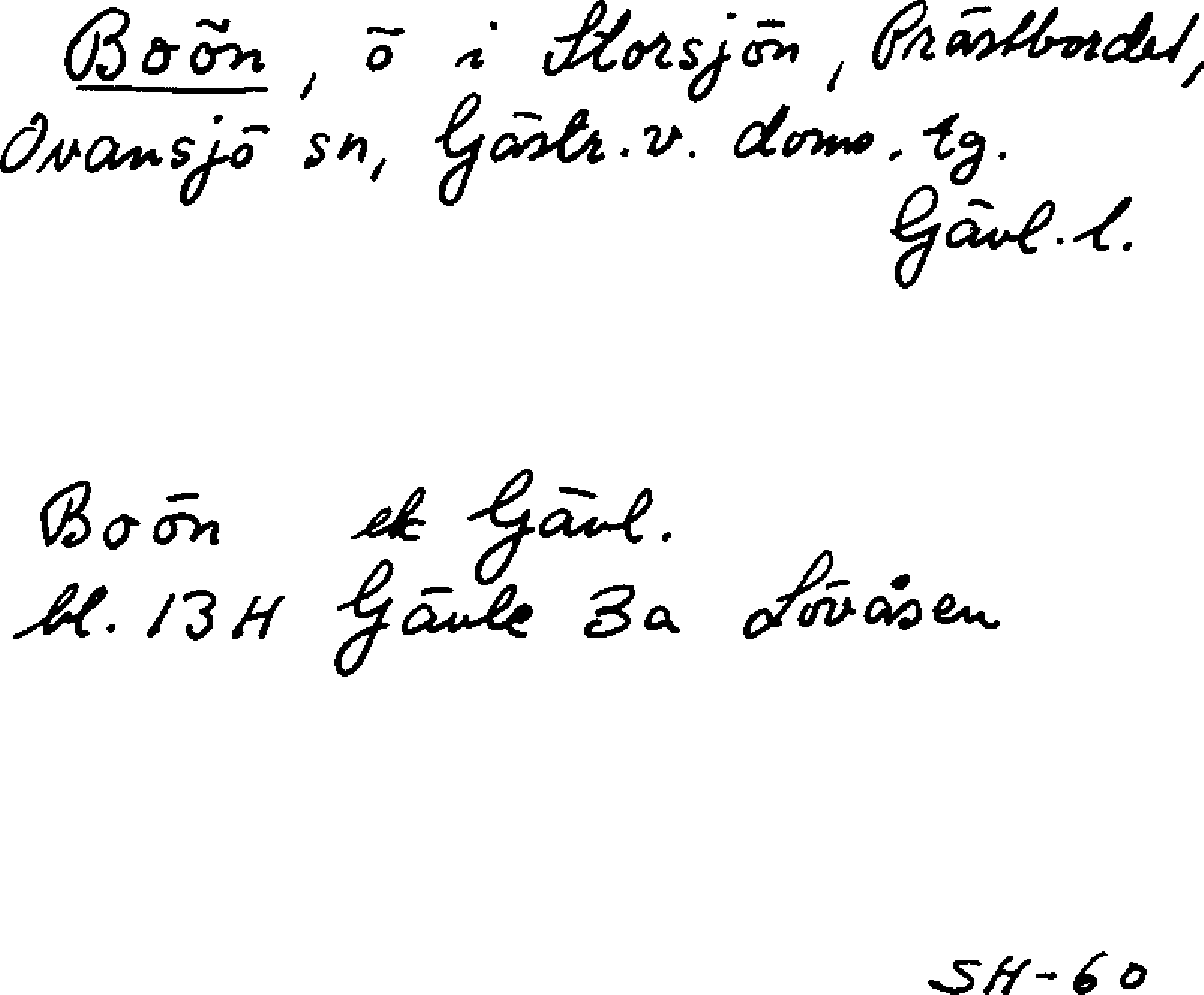 Boön, ö i Storsjön, Prästbordet,
Ovansjö sn, Gästr. v. doms. tg.
Gävl. l.
Boön ek Gävl.
bl. 13H Gävle 3a Lövåsen
SH-60